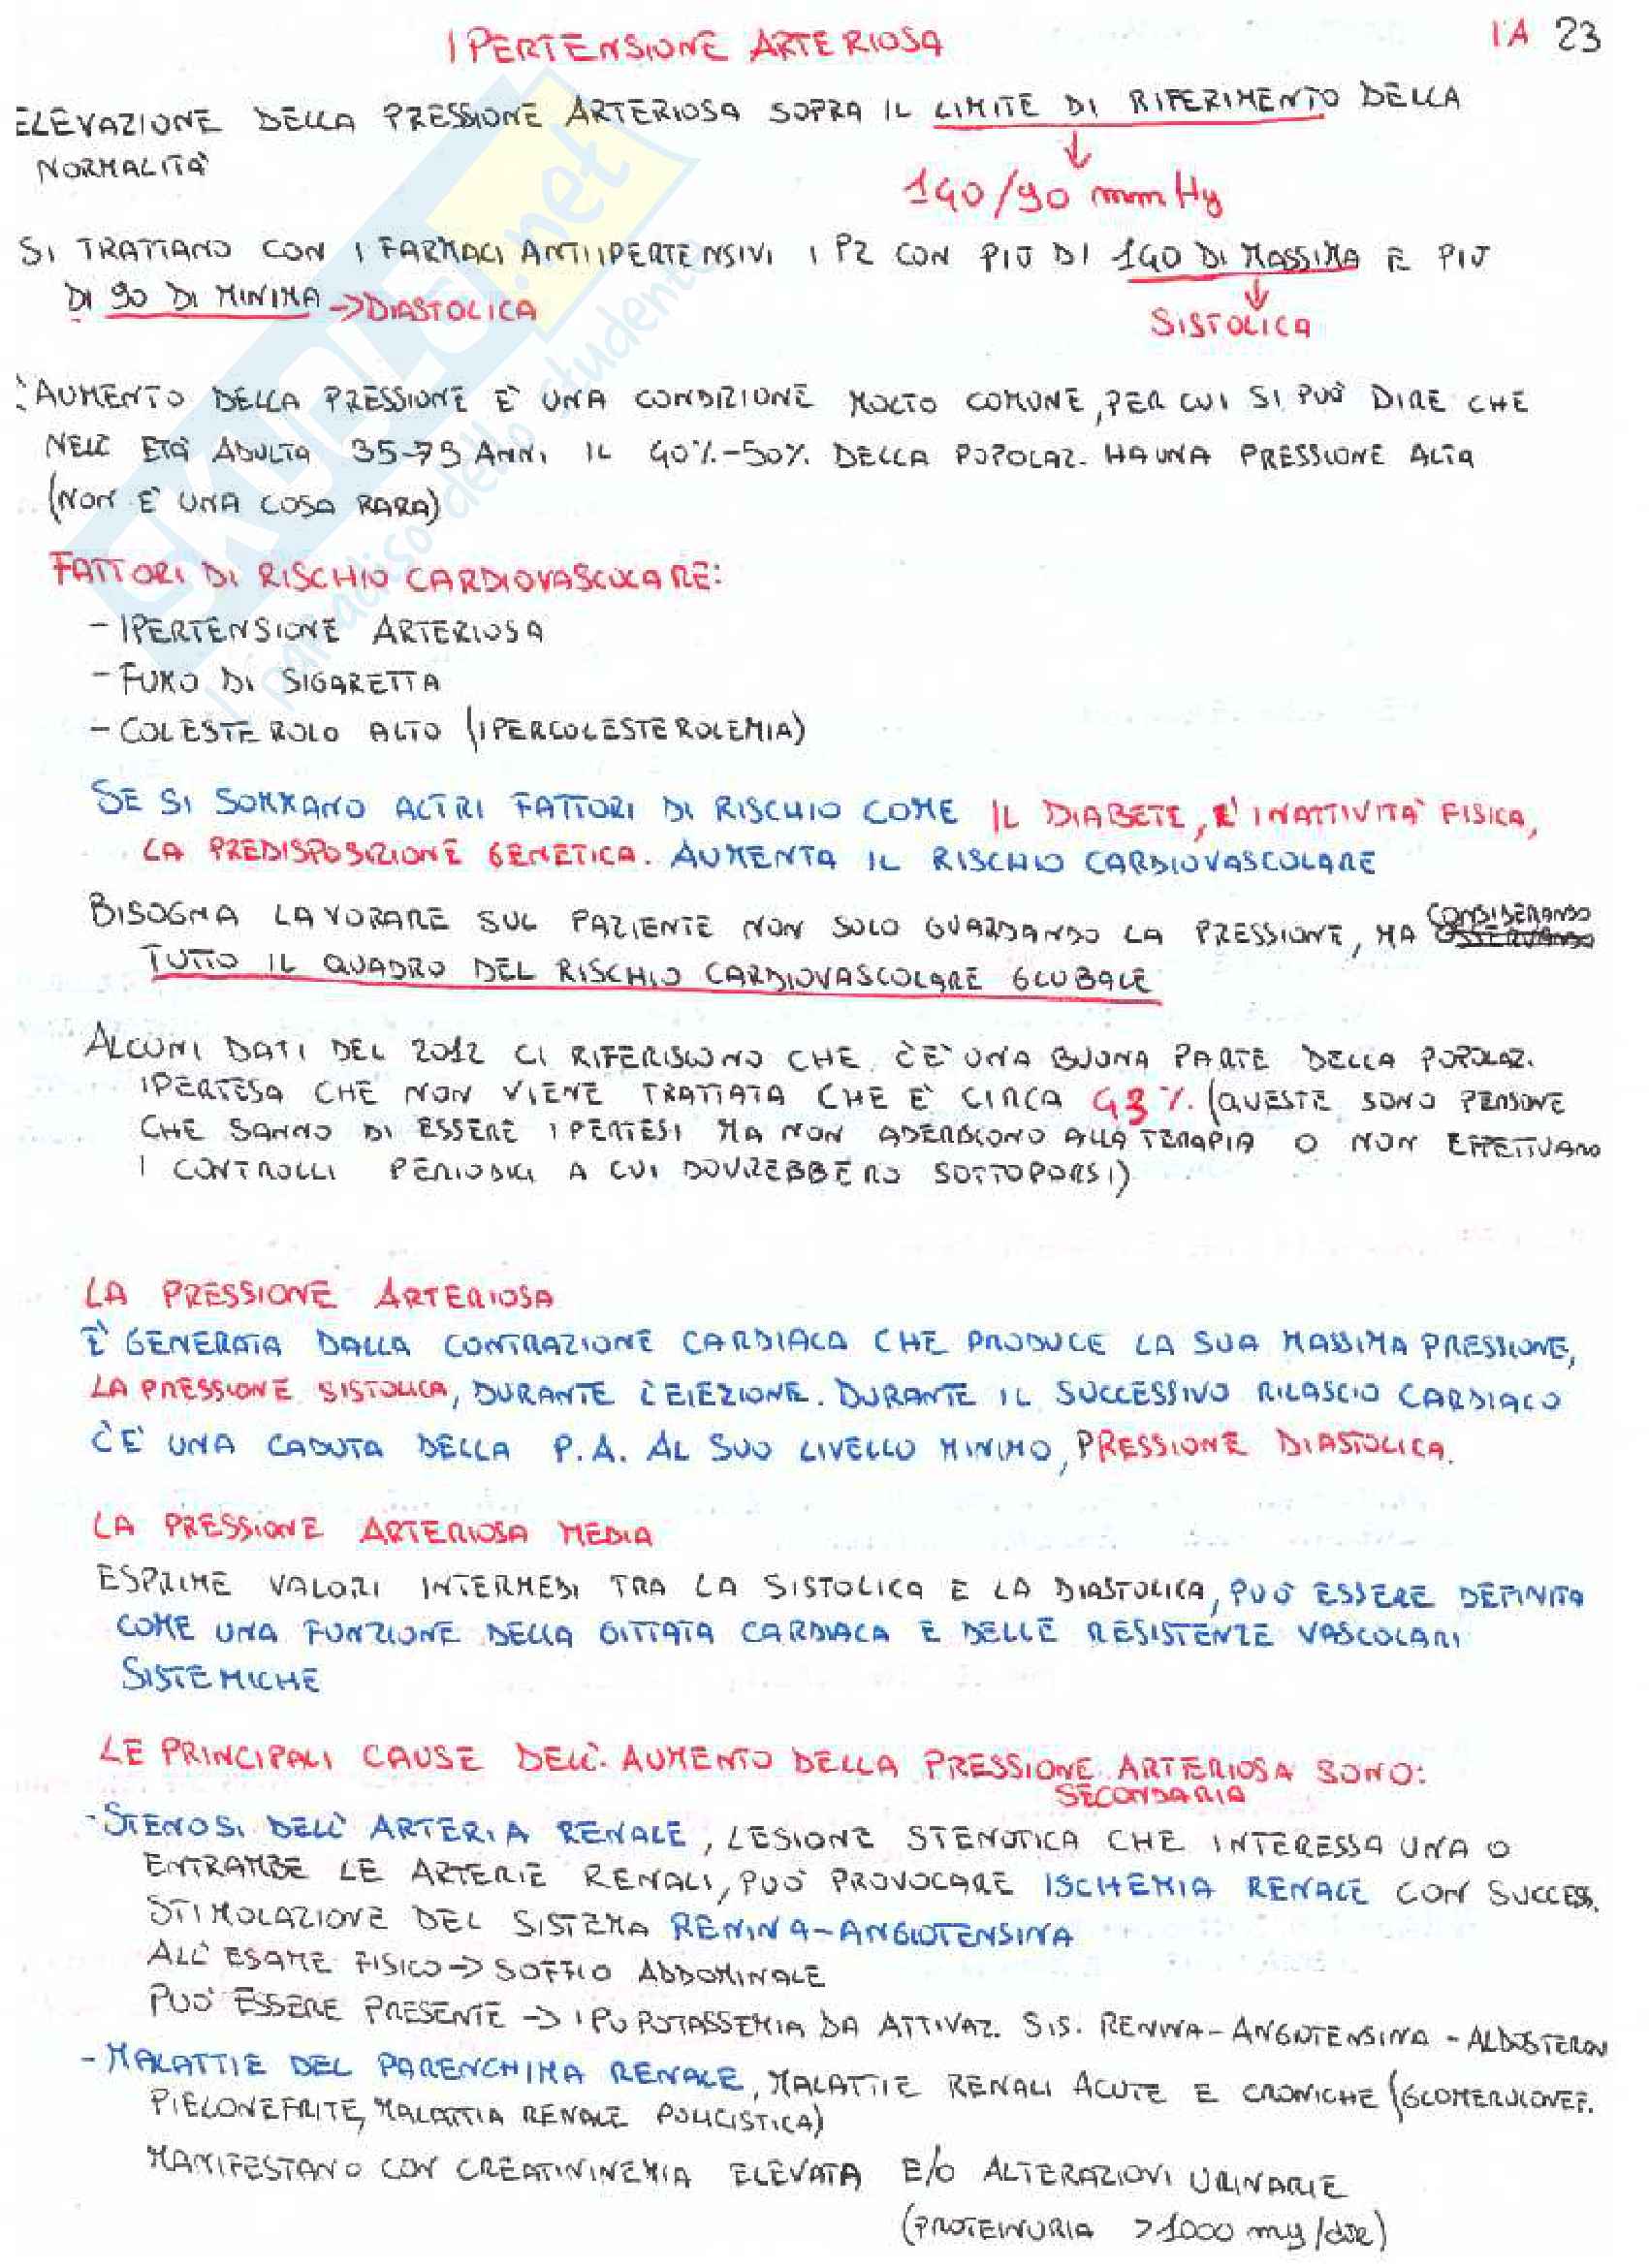 IPERTENSIONE ARTERIOSA
IA 23
ELEVAZIONE DELLA PRESSIONE ARTERIOSA SOPRA IL LIMITE DI RIFERIMENTO DELLA
NORMALITÀ
140/90 mmHg
SI TRATTANO CON I FARMACI ANTIIPERTENSIVI I PZ CON PIÙ DI 140 DI MASSIMA E PIÙ
DI 90 DI MINIMA → DIASTOLICA
SISTOLICA
L'AUMENTO DELLA PRESSIONE È UNA CONDIZIONE MOLTO COMUNE, PER CUI SI PUÒ DIRE CHE
NELL'ETÀ ADULTA 35-75 ANNI IL 40%-50% DELLA POPOLAZ. HA UNA PRESSIONE ALTA
(NON È UNA COSA RARA)
FATTORI DI RISCHIO CARDIOVASCOLARE:
- IPERTENSIONE ARTERIOSA
- FUMO DI SIGARETTA
- COLESTEROLO ALTO (IPERCOLESTEROLEMIA)
SE SI SOMMANO ALTRI FATTORI DI RISCHIO COME IL DIABETE, L'INATTIVITÀ FISICA,
LA PREDISPOSIZIONE GENETICA. AUMENTA IL RISCHIO CARDIOVASCOLARE
BISOGNA LAVORARE SUL PAZIENTE NON SOLO GUARDANDO LA PRESSIONE, MA CONSIDERANDO
TUTTO IL QUADRO DEL RISCHIO CARDIOVASCOLARE GLOBALE
ALCUNI DATI DEL 2012 CI RIFERISCONO CHE C'È UNA BUONA PARTE DELLA POPOLAZ.
IPERTESA CHE NON VIENE TRATTATA CHE È CIRCA 43%. (QUESTE SONO PERSONE
CHE SANNO DI ESSERE IPERTESI MA NON ADERISCONO ALLA TERAPIA O NON EFFETTUANO
I CONTROLLI PERIODICI A CUI DOVREBBERO SOTTOPORSI)
LA PRESSIONE ARTERIOSA
È GENERATA DALLA CONTRAZIONE CARDIACA CHE PRODUCE LA SUA MASSIMA PRESSIONE,
LA PRESSIONE SISTOLICA, DURANTE L'EIEZIONE. DURANTE IL SUCCESSIVO RILASCIO CARDIACO
C'È UNA CADUTA DELLA P.A. AL SUO LIVELLO MINIMO, PRESSIONE DIASTOLICA.
LA PRESSIONE ARTERIOSA MEDIA
ESPRIME VALORI INTERMEDI TRA LA SISTOLICA E LA DIASTOLICA, PUÒ ESSERE DEFINITA
COME UNA FUNZIONE DELLA GITTATA CARDIACA E DELLE RESISTENZE VASCOLARI
SISTEMICHE
LE PRINCIPALI CAUSE DELL'AUMENTO DELLA PRESSIONE ARTERIOSA SONO:
SECONDARIA
- STENOSI DELL'ARTERIA RENALE, LESIONE STENOTICA CHE INTERESSA UNA O
ENTRAMBE LE ARTERIE RENALI, PUÒ PROVOCARE ISCHEMIA RENALE CON SUCCESS.
STIMOLAZIONE DEL SISTEMA RENINA-ANGIOTENSINA
ALL'ESAME FISICO → SOFFIO ADDOMINALE
PUÒ ESSERE PRESENTE → IPOPOTASSEMIA DA ATTIVAZ. SIS. RENINA-ANGIOTENSINA-ALDOSTERON
- MALATTIE DEL PARENCHIMA RENALE, MALATTIE RENALI ACUTE E CRONICHE (GLOMERULONEF.
PIELONEFRITE, MALATTIA RENALE POLICISTICA)
MANIFESTANO CON CREATININEMIA ELEVATA E/O ALTERAZIONI URINARIE
(PROTEINURIA >1000 mg/die)
SKUOLA.net
il paradiso dello studente